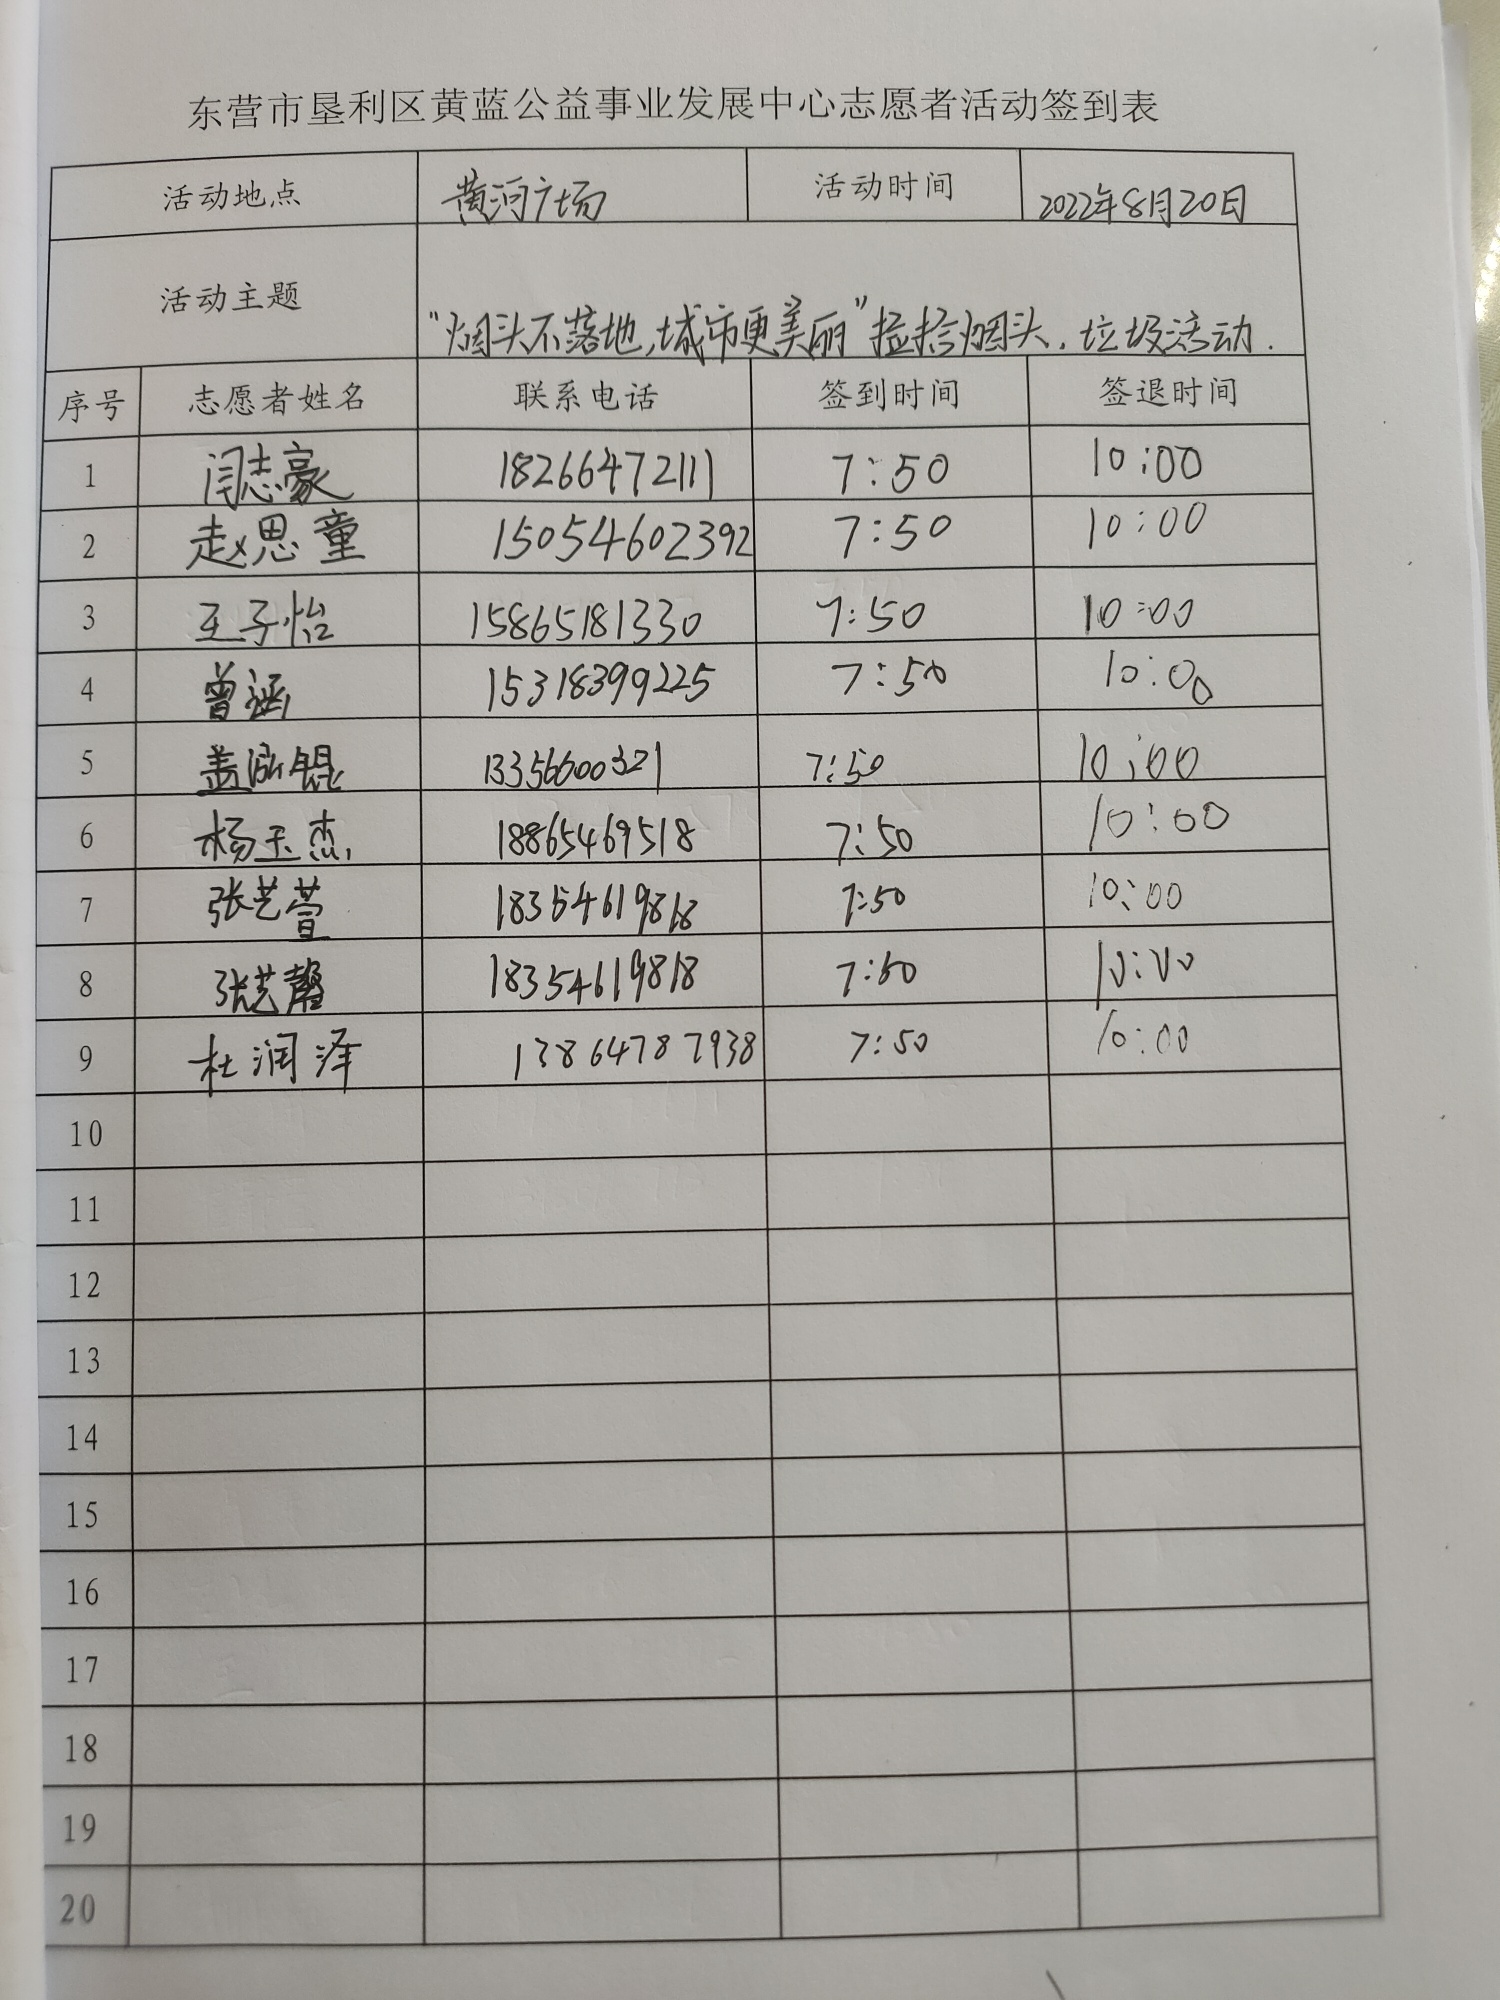 东营市垦利区黄蓝公益事业发展中心志愿者活动签到表
活动地点 黄河广场 活动时间 2022年8月20日
活动主题 “烟头不落地,城市更美丽”捡拾烟头.垃圾活动.
序号 志愿者姓名 联系电话 签到时间 签退时间
1 闫志豪 18266472111 7:50 10:00
2 赵思童 15054602392 7:50 10:00
3 王子怡 15865181330 7:50 10:00
4 曾涵 15318399225 7:50 10:00
5 13356600321 7:50 10:00
6 杨玉杰 18865469518 7:50 10:00
7 张艺萱 18354619818 7:50 10:00
8 张艺馨 18354619818 7:50 10:00
9 杜润泽 13864787938 7:50 10:00
10
11
12
13
14
15
16
17
18
19
20